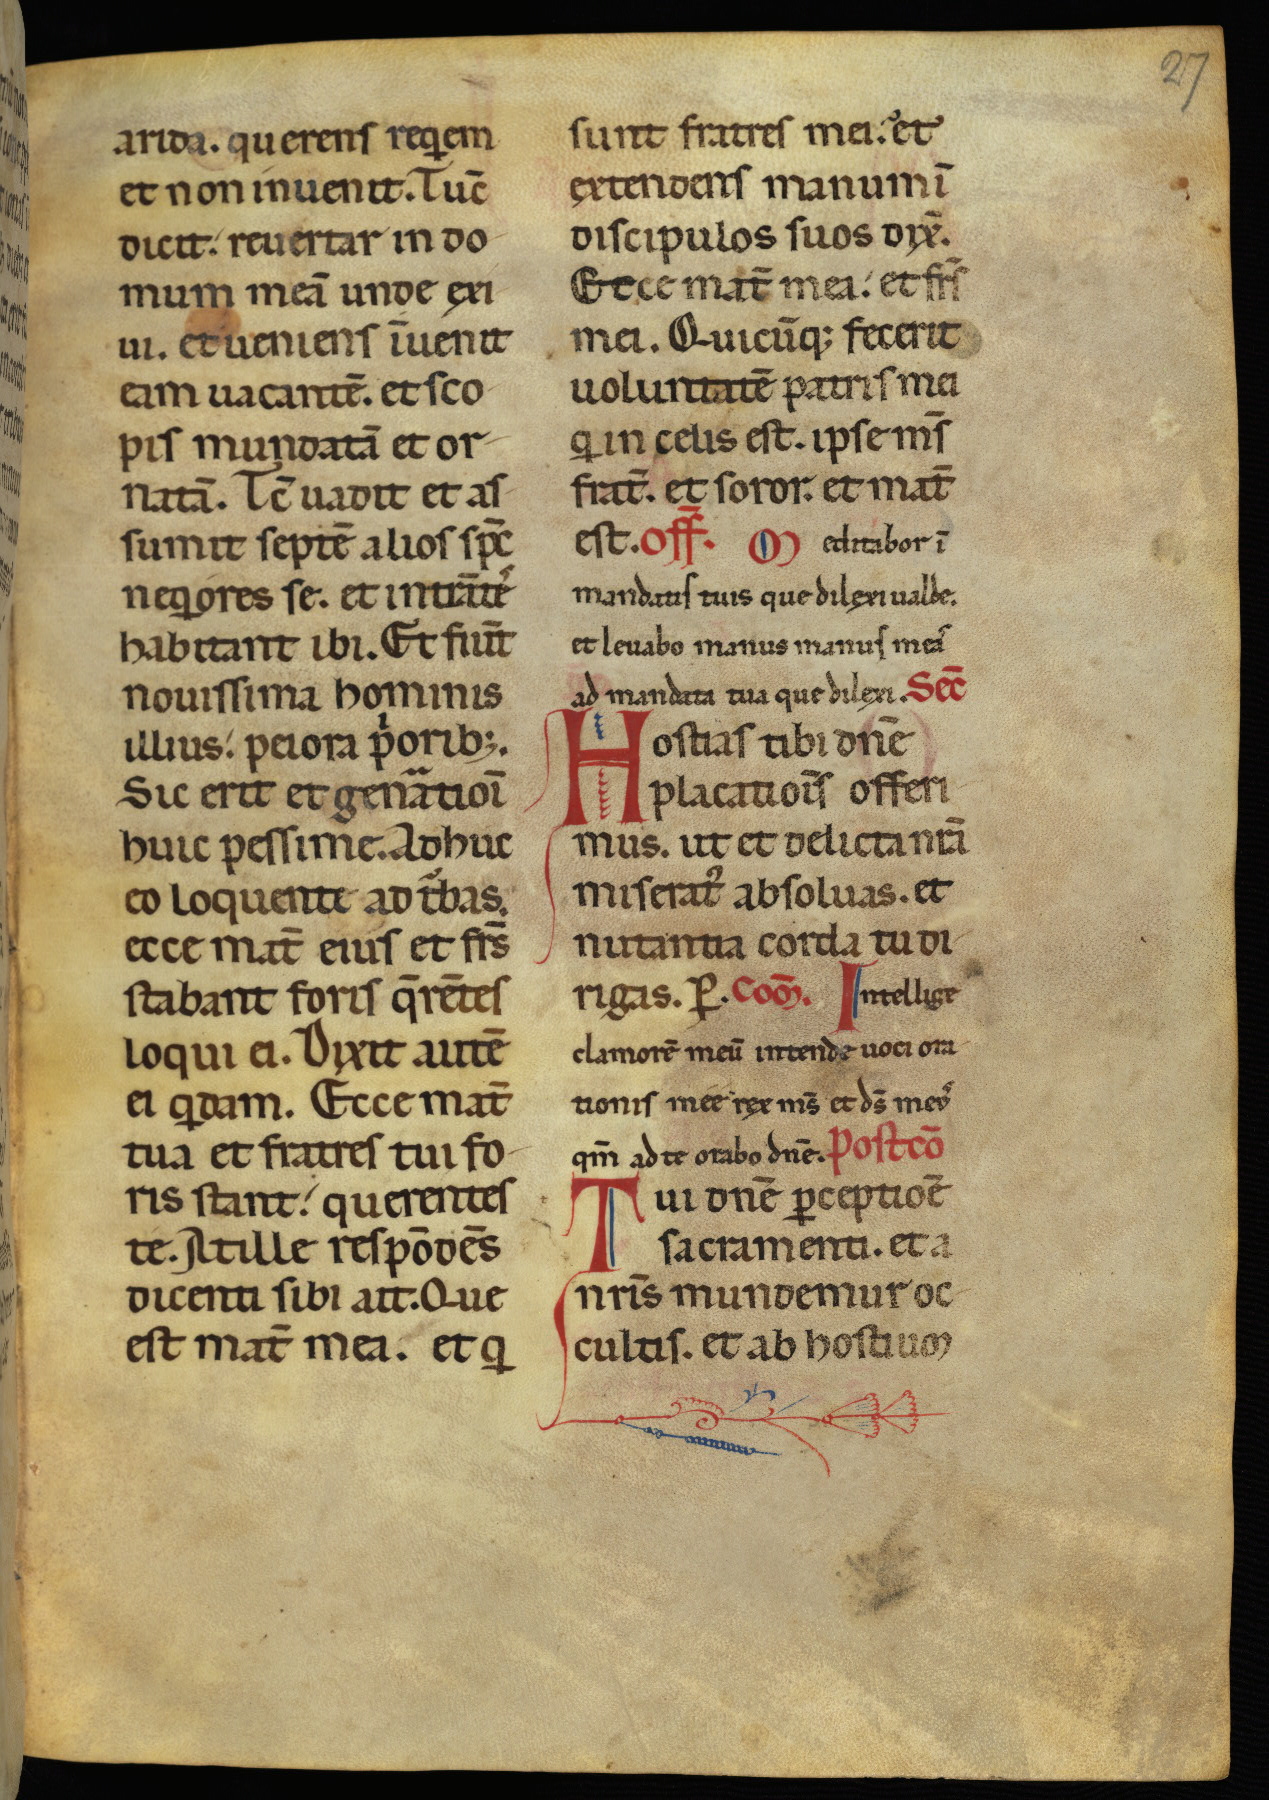 27
arida. querens reqem
et non inuenit. Tuc̄
dicit. reuertar in do
mum meā unde exi
ui. et ueniens īuenit
eam uacantē. et sco
pis mundatā et or
natā. Tc̄ uadit et as
sumit septē alios spc̄
neqores se. et intrātes
habitant ibi. Et fiūt
nouissima hominis
illius. peiora p̍orib;.
Sic erit et gen̄ationī
huic pessime. Adhuc
eo loquente ad tͧbas.
ecce mat̄ eius et frs̄
stabant foris q̄rētes
loqui ei. Dixit autē
ei qdam. Ecce mat̄
tua et fratres tui fo
ris stant. querentes
te. At ille respōdēs
dicenti sibi ait. Que
est mat̄ mea. et q
sunt fratres mei. et
extendens manum ī
discipulos suos dix̄.
Ecce mat̄ mea. et frs̄
mei. Quicūq; fecerit
uoluntatē patris mei
q in celis est. ipse ms̄
frat̄. et soror. et mat̄
est. Off̄. Meditabor ī
mandatis tuis que dilexi ualde.
et leuabo manus manus meas
ad mandata tua que dilexi. Sec̄
Hostias tibi dn̄e
placatiōis offeri
mus. ut et delicta nr̄a
miserat᷒ absoluas. et
nutantia corda tu di
rigas. P. Com̄. Intellige
clamorē meū intende uoci ora
tionis mee rex ms̄ et ds̄ meus
qm̄ ad te orabo dn̄e. Postcō
Tui dn̄e ꝑceptioē
sacramenti. et a
nr̄is mundemur oc
cultis. et ab hostium